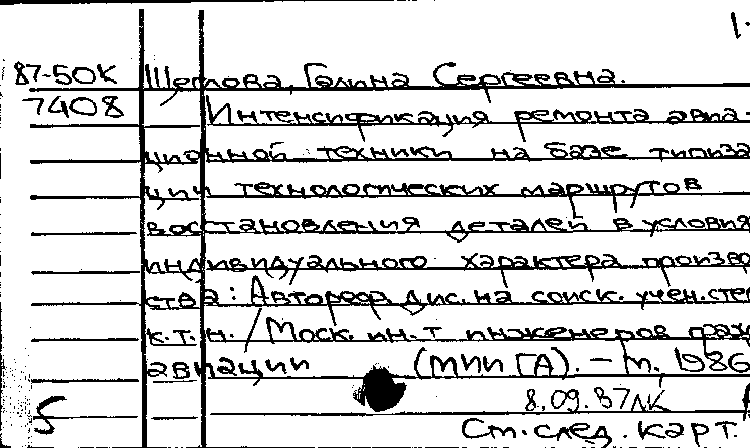 87-50К Щеглова, Галина Сергеевна.
7408 Интенсификация ремонта авиа-
ционной техники на базе типиза
ции технологических маршрутов
восстановления деталей в условия
индивидуального характера произво
ства: Автореф. дис. на соиск. учен. степ
к.т.н. / Моск. ин-т инженеров граж
авиации (МИИ ГА). – М., 1986
8.09.87
См. след. карт.